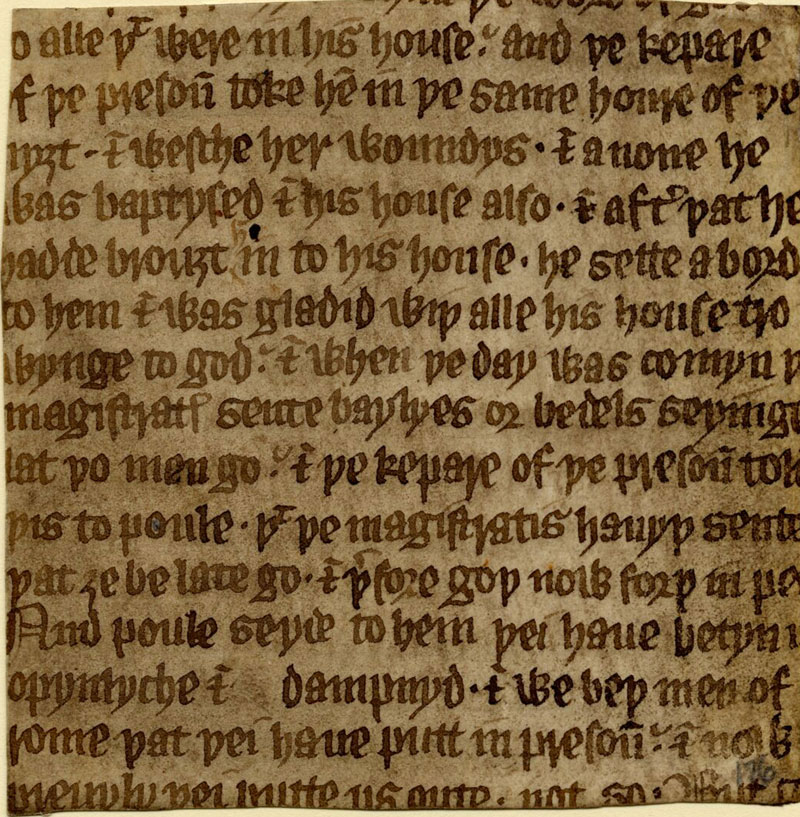 o alle þᵗ were in his house. and þe kepare
f þe presoū toke hē in þe same houre of þe
nyȝt. ⁊ wesche her woundys. ⁊ anone he
was baptysed ⁊ his house also. ⁊ aftʼ þat he
hadde brouȝt in to his house. he sette a bord
to hem ⁊ was gladid wiþ alle his house tro
wynge to god. ⁊ when þe day was comyn þ
magistratꝭ sente baylyes or bedels seyinge
lat þo men go. ⁊ þe kepare of þe presoū tolde
þis to poule. þᵗ þe magistratis hauyþ sente
þat ȝe be late go. ⁊ þʳfore goþ now forþ in pe
And poule seyde to hem þei haue betyn u
opynlyche ⁊ dampnyd. ⁊ we beþ men of
rome þat þei haue putt in presoū. ⁊ now
preuyly þei putte us oute. not so. But